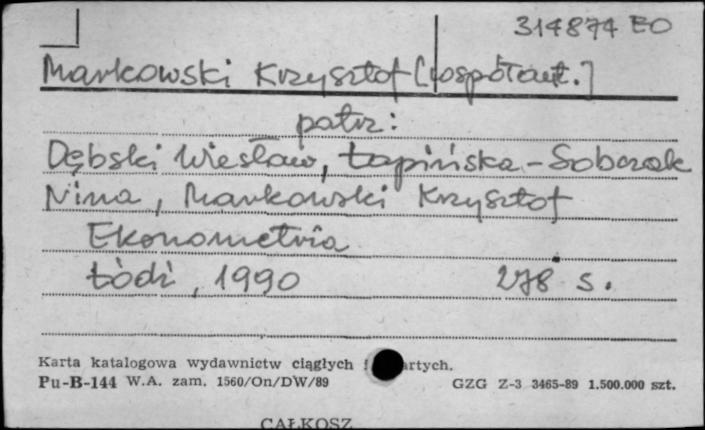 314874 EO
Markowski Krzysztof [współaut.]
patrz:
Dębski Wiesław, Łapińska-Sobczak
Nina, Markowski Krzysztof
Ekonometria
Łódź, 1990 278 s.
Karta katalogowa wydawnictw ciągłych
Pu-B-144 W.A. zam. 1560/On/DW/89 GZG Z-3 3465-89 1.500.000 szt.
CAŁKOSZ